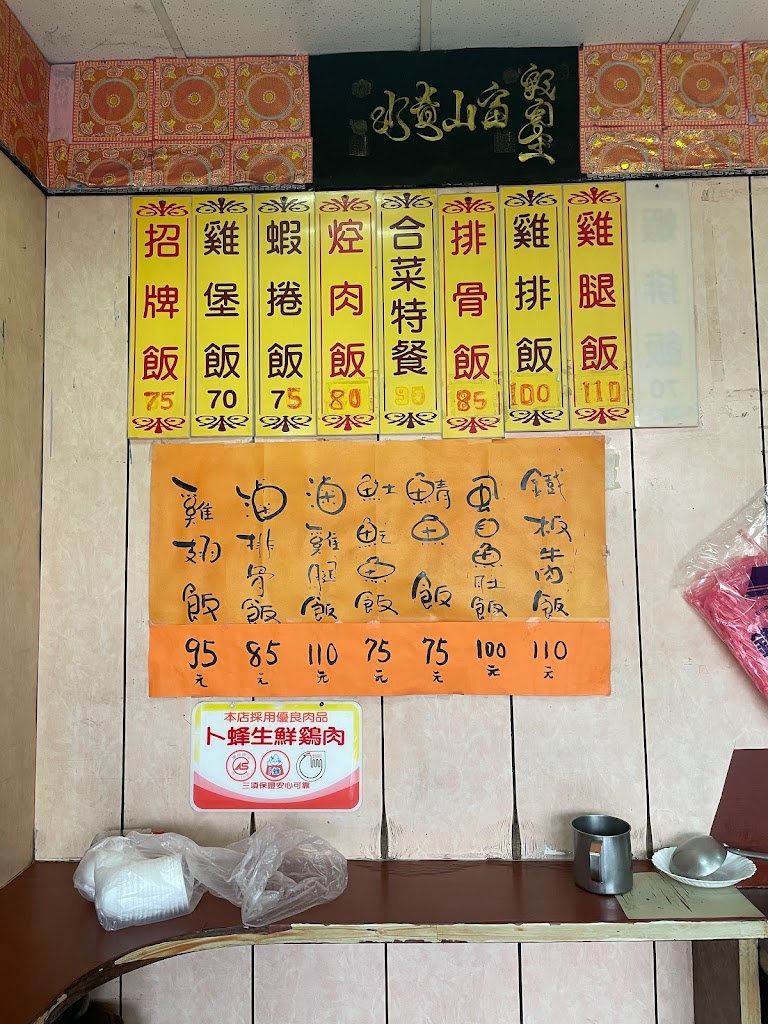 富山貴水
招牌飯 75
雞堡飯 70
蝦捲飯 75
焢肉飯 80
合菜特餐 90
排骨飯 85
雞排飯 100
雞腿飯 110
蝦排飯 70
雞翅飯 95元
滷排骨飯 85元
滷雞腿飯 110元
魠魚飯 75元
鯖魚飯 75元
虱目魚肚飯 100元
鐵板牛肉飯 110元
本店採用優良肉品
卜蜂生鮮鷄肉
CAS
三項保證安心可靠